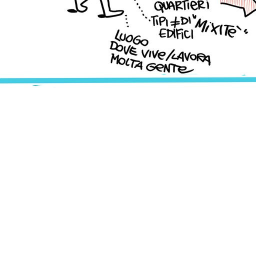 QUARTIERI
TIPI ≠ DI "MIXITè"
EDIFICI
LUOGO
DOVE VIVE/LAVORA
MOLTA GENTE